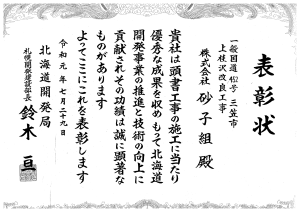 表彰状
一般国道452号 三笠市
上桂沢改良工事
株式会社 砂子組 殿
貴社は頭書工事の施工に当たり
優秀な成果を収めもって北海道
開発事業の推進と技術の向上に
貢献されその功績は誠に顕著な
ものがあります
よってここにこれを表彰します
令和元年七月二十九日
北海道開発局
札幌開発建設部長 鈴木 亘